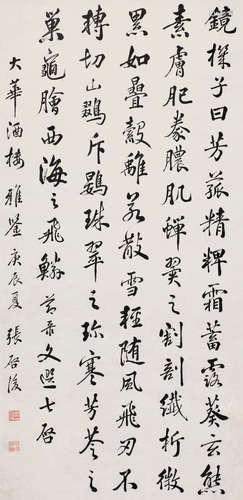 鏡機子曰芳菰精粺霜蓄露葵玄熊
素膚肥豢膿肌蟬翼之割剖纖析微
累如疊縠離若散雪輕隨風飛刃不
轉切山鵽斥鷃珠翠之珍寒芳苓之
巢龜膾西海之飛鱗 節录文選七啓
大華酒樓雅鑒 庚辰夏 張啓後